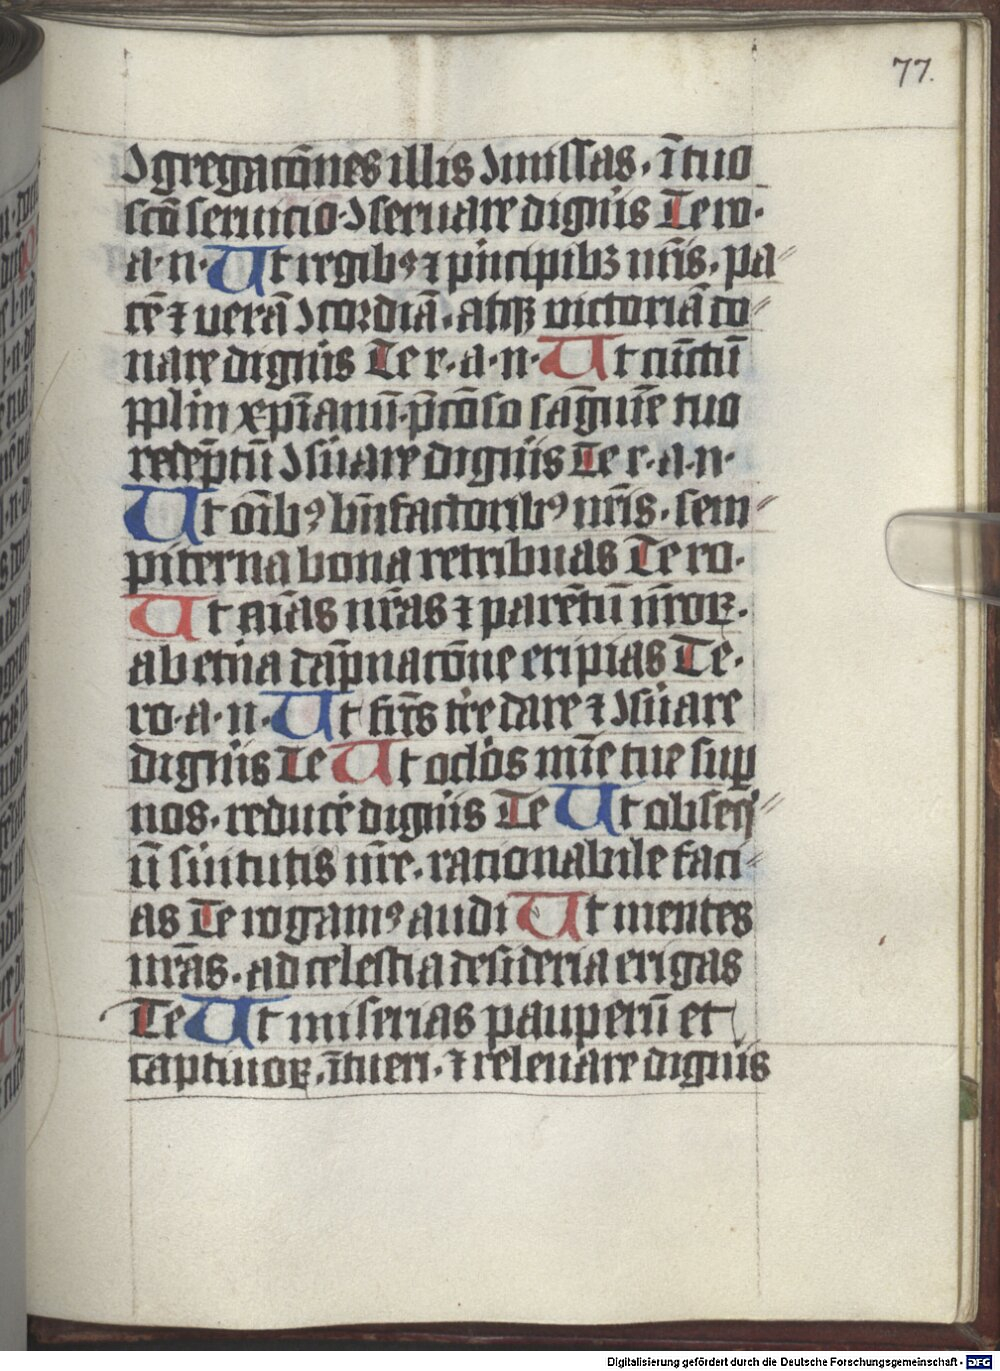 77.
ꝯgregac̄ōnes illis ꝯmissas · ī tuo
sc̄o seruicio · ꝯseruare digneris Te ro·
a · n · Ut regibꝰ ⁊ pͥncipibꝫ nr̄is · pa
cē ⁊ uerā ꝯcordiā · atqꝫ victoriā do
nare digneris Te r · a · n · Ut cūctū
pplm xp̄ianū · p̄cōso sāguīe tuo
redēptū ꝯsuare digneris Te r · a · n ·
Ut oībꝰ bn̄factoribꝰ nr̄is · sem
piterna bona retribuas Te ro ·
Ut aīas nr̄as ⁊ parētū nr̄oꝝ ·
ab etna dāpnacōne eripias Te ·
ro · a · n · Ut fru᷒s tre dare ⁊ ꝯsuare
digneris Te Ut oclos mīe tue suꝑ
nos · reducē digneris Te Ut obseq
ū suitutis nr̄e · racionabile faci
as Te rogamꝰ audi Ut mentes
nr̄as · ad celestia desideria erigas
Te Ut miserias pauperū et
captiuoꝝ · ītueri · ⁊ releuare digneris
Digitalisierung gefördert durch die Deutsche Forschungsgemeinschaft - DFG